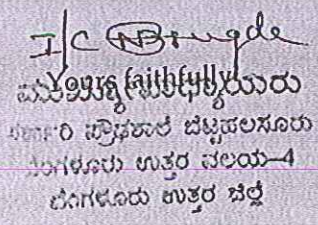 I/C
Yours faithfully
ಸರ್ಕಾರಿ ಪ್ರೌಢಶಾಲೆ ಬೆಟ್ಟಹಲಸೂರು
ಬೆಂಗಳೂರು ಉತ್ತರ ವಲಯ-4
ಬೆಂಗಳೂರು ಉತ್ತರ ಜಿಲ್ಲೆ